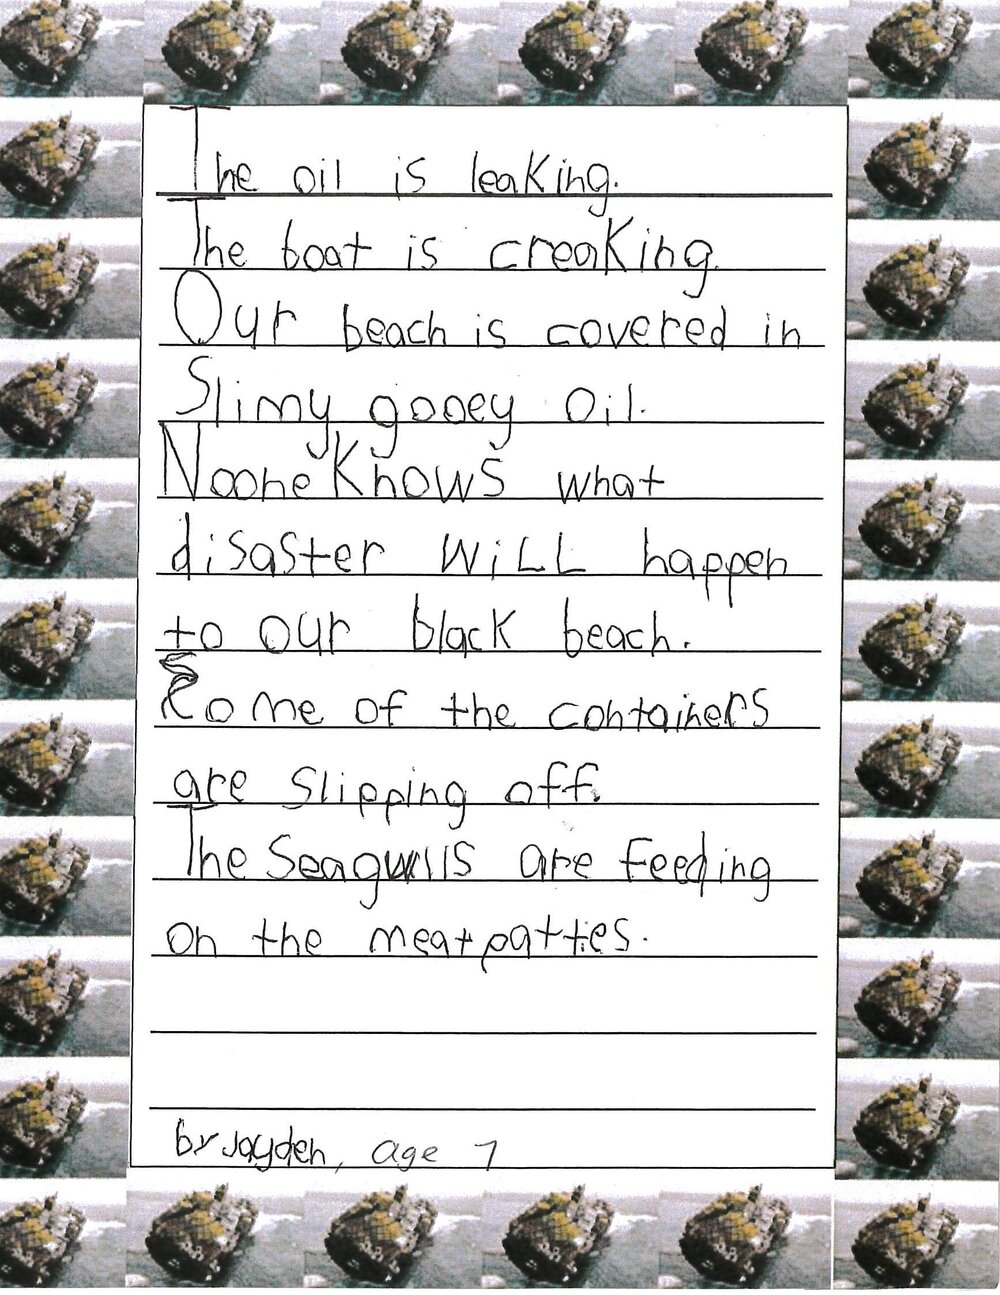 The oil is leaking.
The boat is creaking.
Our beach is covered in
Slimy gooey oil.
Noone Knows what
disaster WiLL happen
to our black beach.
Some of the containers
are Slipping off.
The Seagulls are Feeding
on the meatpatties.
by Jayden, age 7